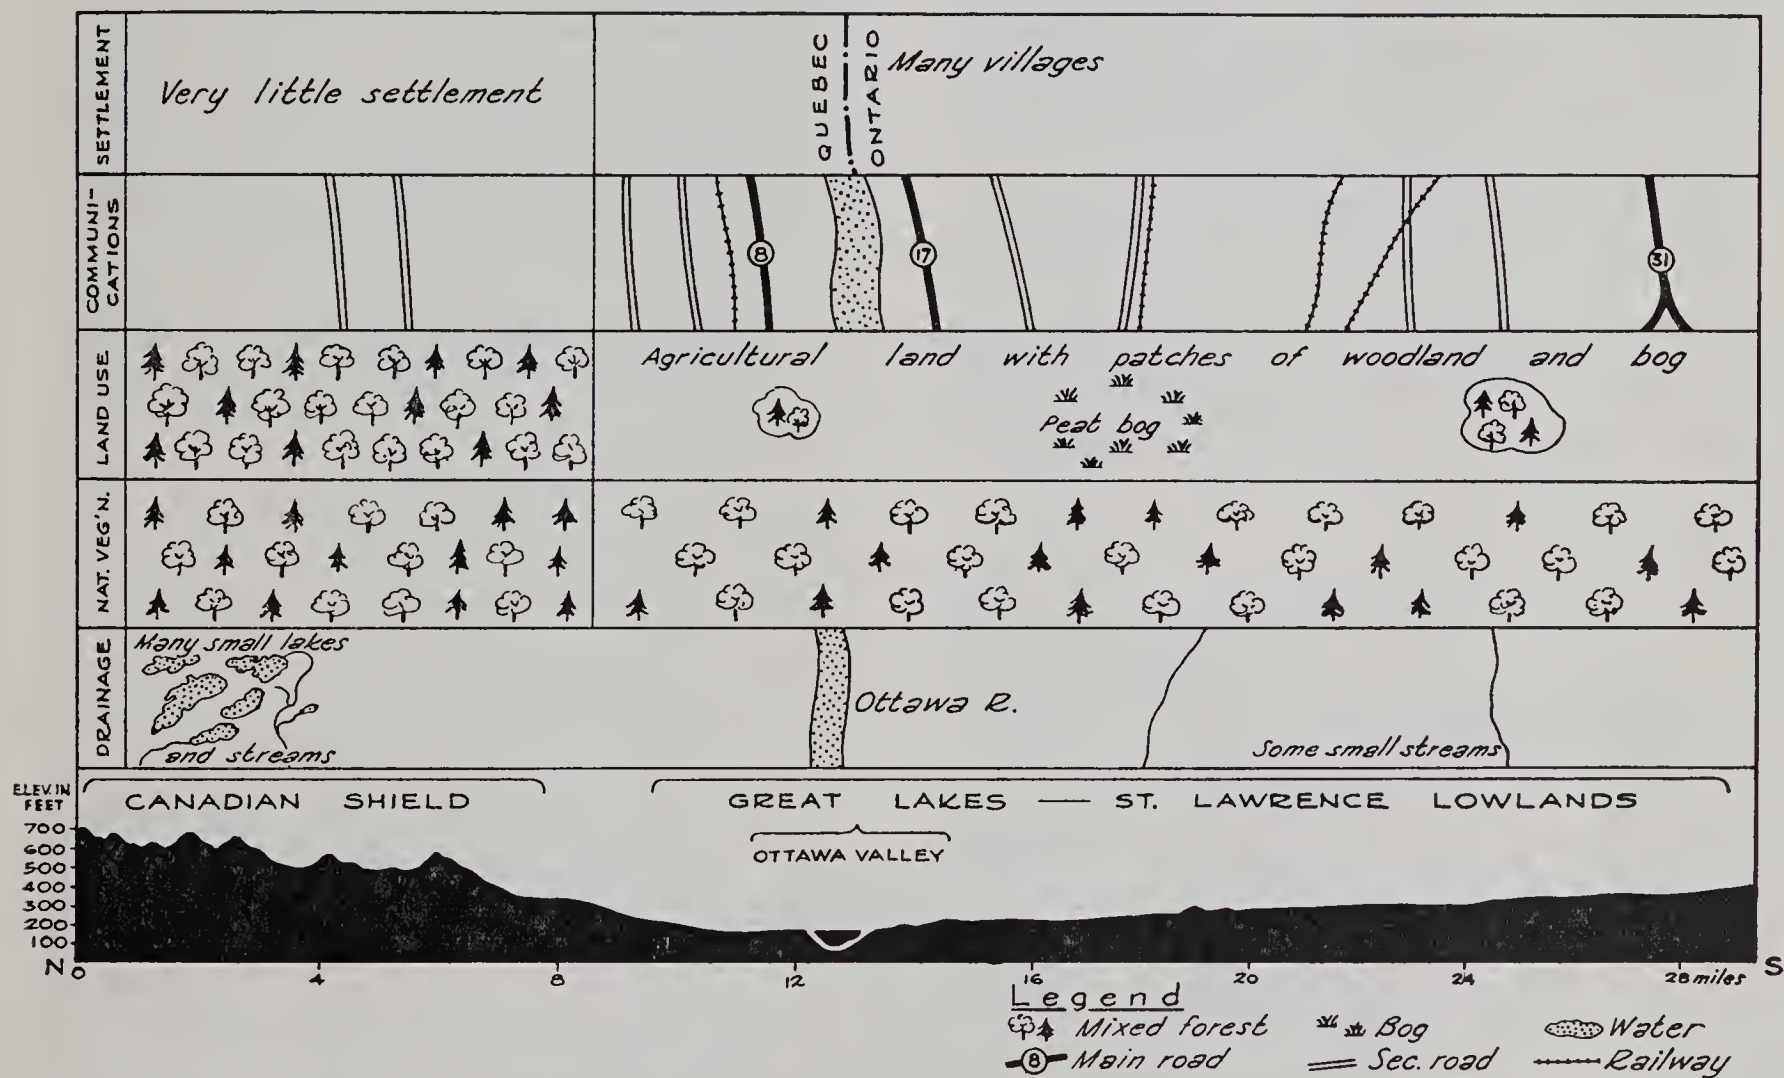 SETTLEMENT
Very little settlement
QUEBEC
ONTARIO
Many villages
COMMUNI-
CATIONS
8
17
31
LAND USE
Agricultural land with patches of woodland and bog
Peat bog
NAT. VEG'N.
DRAINAGE
Many small lakes
and streams
Ottawa R.
Some small streams
ELEV. IN
FEET
CANADIAN SHIELD
GREAT LAKES — ST. LAWRENCE LOWLANDS
OTTAWA VALLEY
700
600
500
400
300
200
100
N
0 4 8 12 16 20 24 28 miles
S
Legend
Mixed forest
Bog
Water
8 Main road
Sec. road
Railway